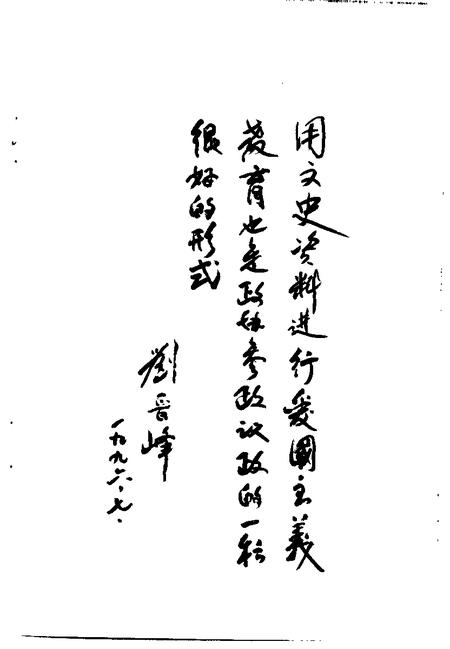 用文史资料进行爱國主義
教育也是政协参政议政的一种
很好的形式
劉晋峰
一九九六.七.